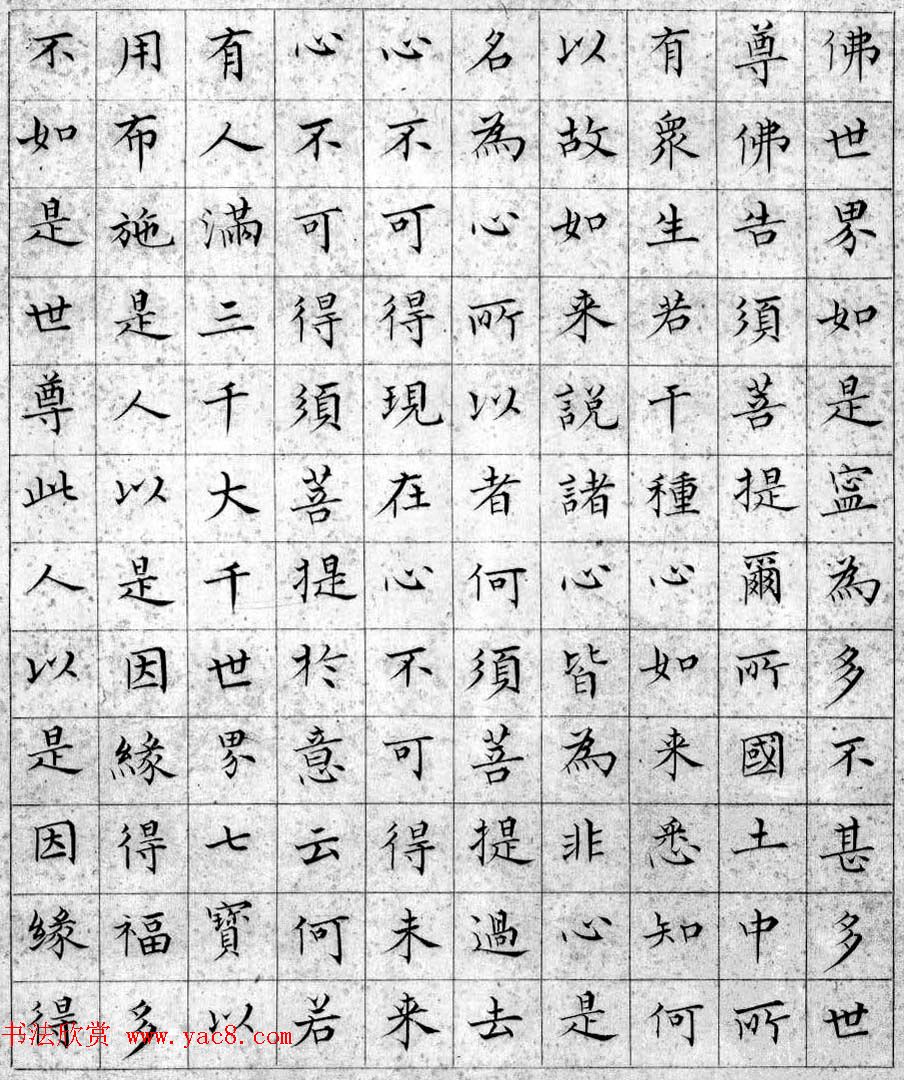 佛世界如是寍為多不甚多世
尊佛告須菩提爾所國土中所
有衆生若干種心如来悉知何
以故如来說諸心皆為非心是
名為心所以者何須菩提過去
心不可得現在心不可得未来
心不可得須菩提於意云何若
有人滿三千大千世界七寶以
用布施是人以是因緣得福多
不如是世尊此人以是因緣得
书法欣赏 www.yac8.com